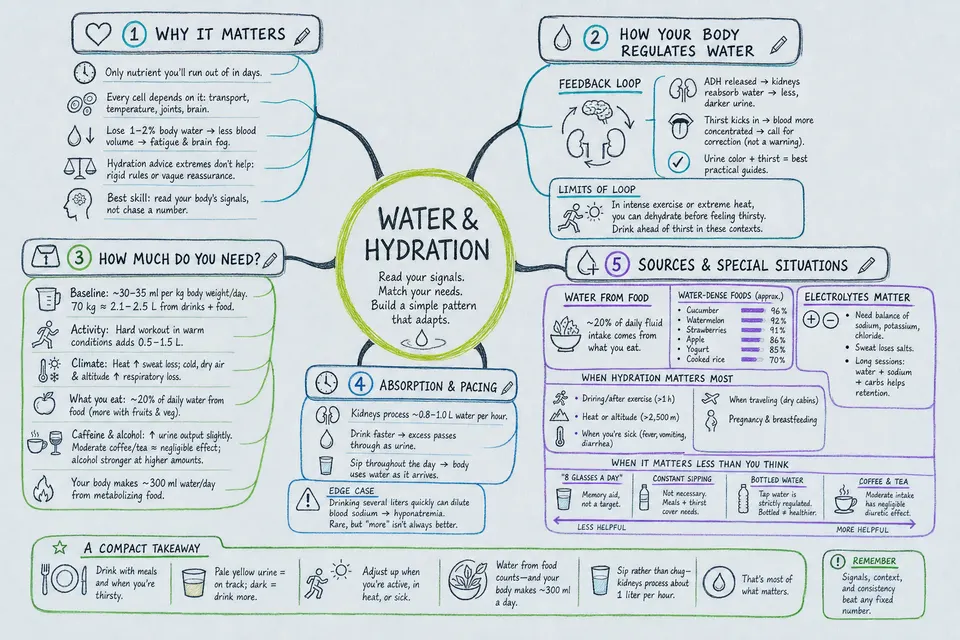 1 WHY IT MATTERS
Only nutrient you'll run out of in days.
Every cell depends on it: transport,
temperature, joints, brain.
Lose 1–2% body water → less blood
volume → fatigue & brain fog.
Hydration advice extremes don't help:
rigid rules or vague reassurance.
Best skill: read your body's signals,
not chase a number.
2 HOW YOUR BODY
REGULATES WATER
FEEDBACK LOOP
ADH released → kidneys
reabsorb water → less,
darker urine.
Thirst kicks in → blood more
concentrated → call for
correction (not a warning).
Urine color + thirst = best
practical guides.
LIMITS OF LOOP
In intense exercise or extreme heat,
you can dehydrate before feeling thirsty.
Drink ahead of thirst in these contexts.
WATER &
HYDRATION
Read your signals.
Match your needs.
Build a simple pattern
that adapts.
3 HOW MUCH DO YOU NEED?
Baseline: ~30–35 ml per kg body weight/day.
70 kg ≈ 2.1–2.5 L from drinks + food.
Activity: Hard workout in warm
conditions adds 0.5–1.5 L.
Climate: Heat ↑ sweat loss; cold, dry air
& altitude ↑ respiratory loss.
What you eat: ~20% of daily water from
food (more with fruits & veg).
Caffeine & alcohol: ↑ urine output slightly.
Moderate coffee/tea ≈ negligible effect;
alcohol stronger at higher amounts.
Your body makes ~300 ml water/day
from metabolizing food.
4 ABSORPTION & PACING
Kidneys process ~0.8–1.0 L water per hour.
Drink faster → excess passes
through as urine.
Sip throughout the day → body
uses water as it arrives.
EDGE CASE
Drinking several liters quickly can dilute
blood sodium → hyponatremia.
Rare, but "more" isn't always better.
5 SOURCES & SPECIAL SITUATIONS
WATER FROM FOOD
~20% of daily fluid
intake comes from
what you eat.
WATER-DENSE FOODS (approx.)
• Cucumber 96%
• Watermelon 92%
• Strawberries 91%
• Apple 86%
• Yogurt 85%
• Cooked rice 70%
ELECTROLYTES MATTER
• Need balance of
sodium, potassium,
chloride.
• Sweat loses salts.
• Long sessions:
water + sodium
+ carbs helps
retention.
WHEN HYDRATION MATTERS MOST
• Driring/after exercise (>1 h)
• Heat or altitude (>2,500 m)
• When you're sick (fever, vomiting,
diarrhea)
When traveling (dry cabins)
Pregnancy & breastfeeding
WHEN IT MATTERS LESS THAN YOU THINK
"8 GLASSES A DAY"
Memory aid,
not a target.
CONSTANT SIPPING
Not necessary.
Meals + thirst
cover needs.
BOTTLED WATER
Tap water is
strictly regulated.
Bottled ≠ healthier.
COFFEE & TEA
Moderate intake
has negligible
diuretic effect.
LESS HELPFUL
MORE HELPFUL
A COMPACT TAKEAWAY
Drink with meals
and when you're
thirsty.
Pale yellow urine =
on track; dark =
drink more.
Adjust up when
you're active, in
heat, or sick.
Water from food
counts—and your
body makes ~300 ml
a day.
Sip rather than chug—
kidneys process about
1 liter per hour.
That's most of
what matters.
REMEMBER
Signals, context,
and consistency
beat any fixed
number.